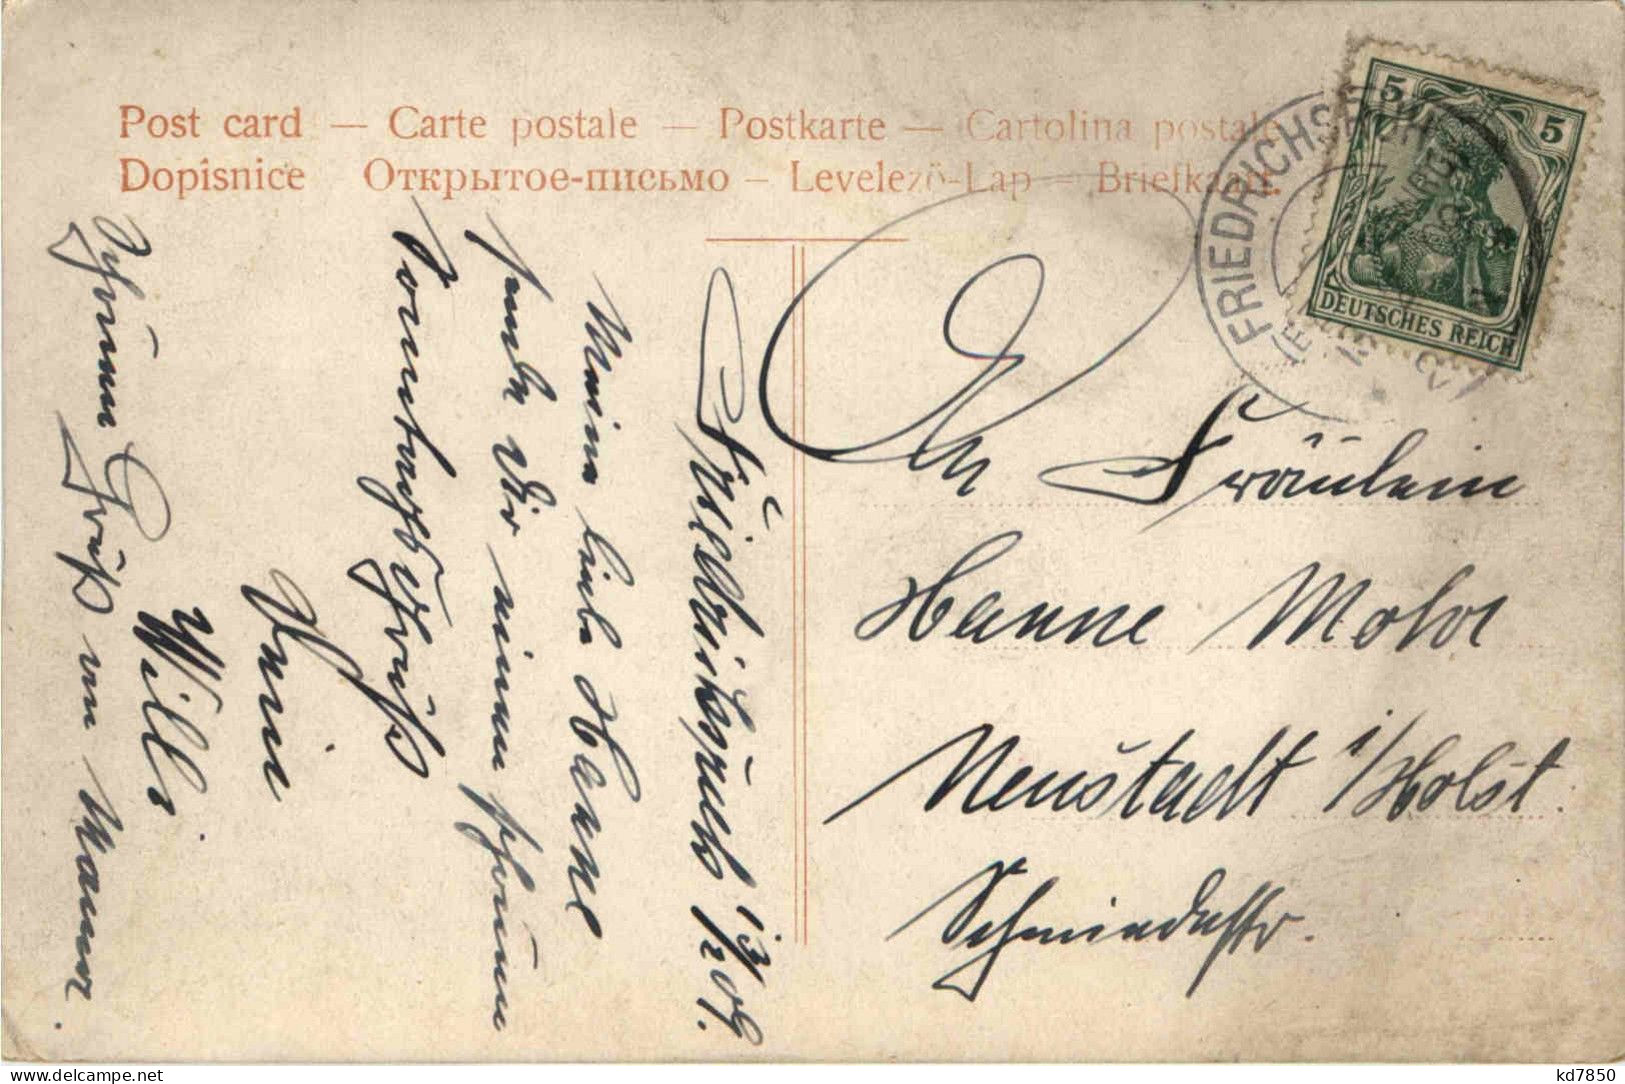 Post card — Carte postale — Postkarte — Cartolina postale
Dopisnice Открытое-письмо — Levelező-Lap — Briefkaart.
FRIEDRICHSRUH
5 5
DEUTSCHES REICH
An Fräulein
Hanne Mohr
Neustadt i/Holst.
Schmiedestr.
Friedrichsruh 13/12 09.
Meine liebe Hanne
sende Dir einen schönen
Sonntagsgruß
Dein
Willi
Schönen Gruß von Mama.
kd7850